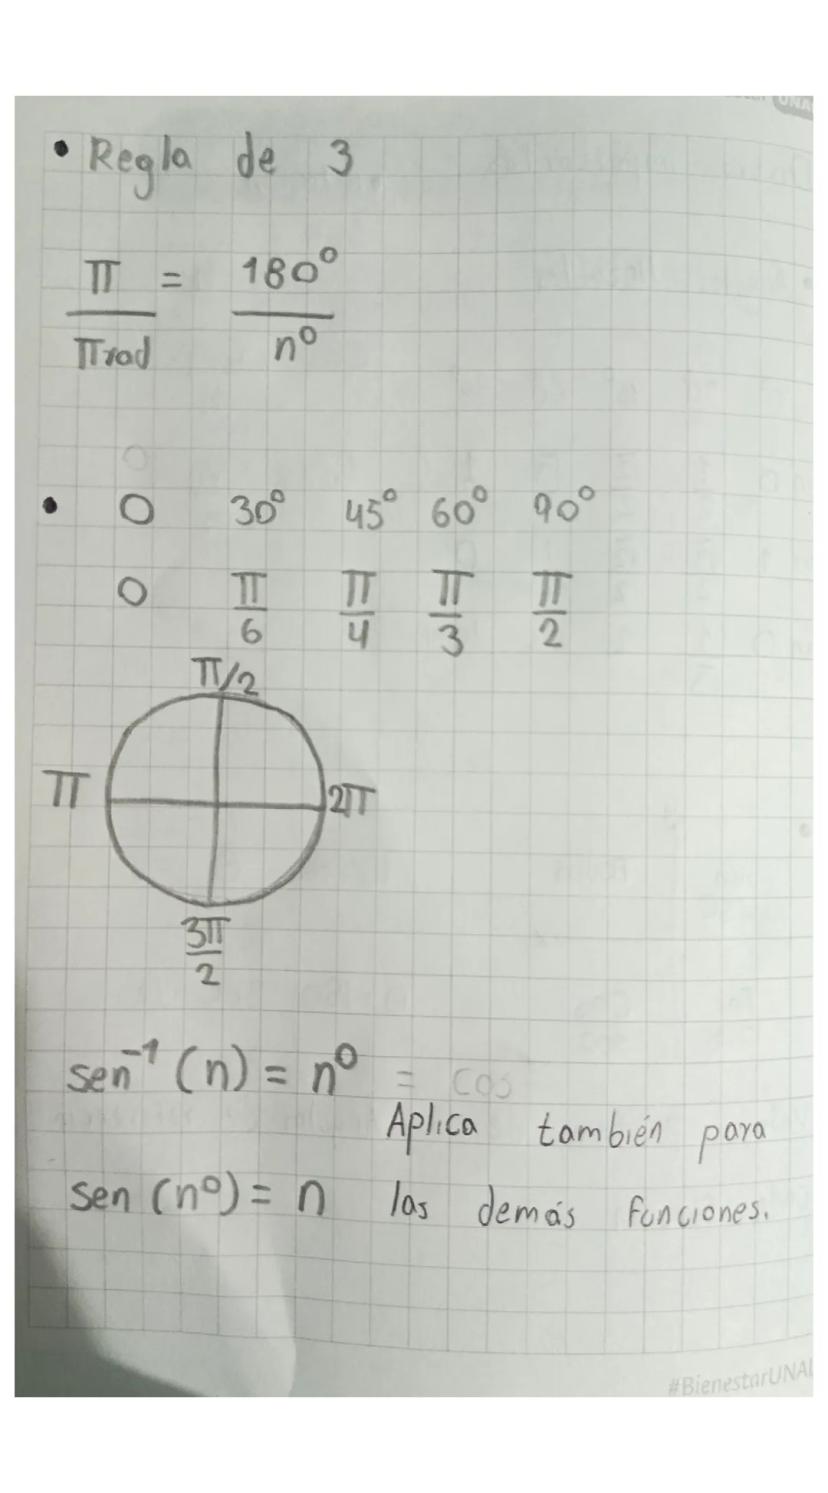 • Regla de 3
π/πrad = 180°/n°
• 0 30° 45° 60° 90°
0 π/6 π/4 π/3 π/2
π/2
π 2π
3π/2
sen⁻¹ (n) = n° = cos
Aplica también para
sen (n°) = n las demás funciones.
#BienestarUNAL